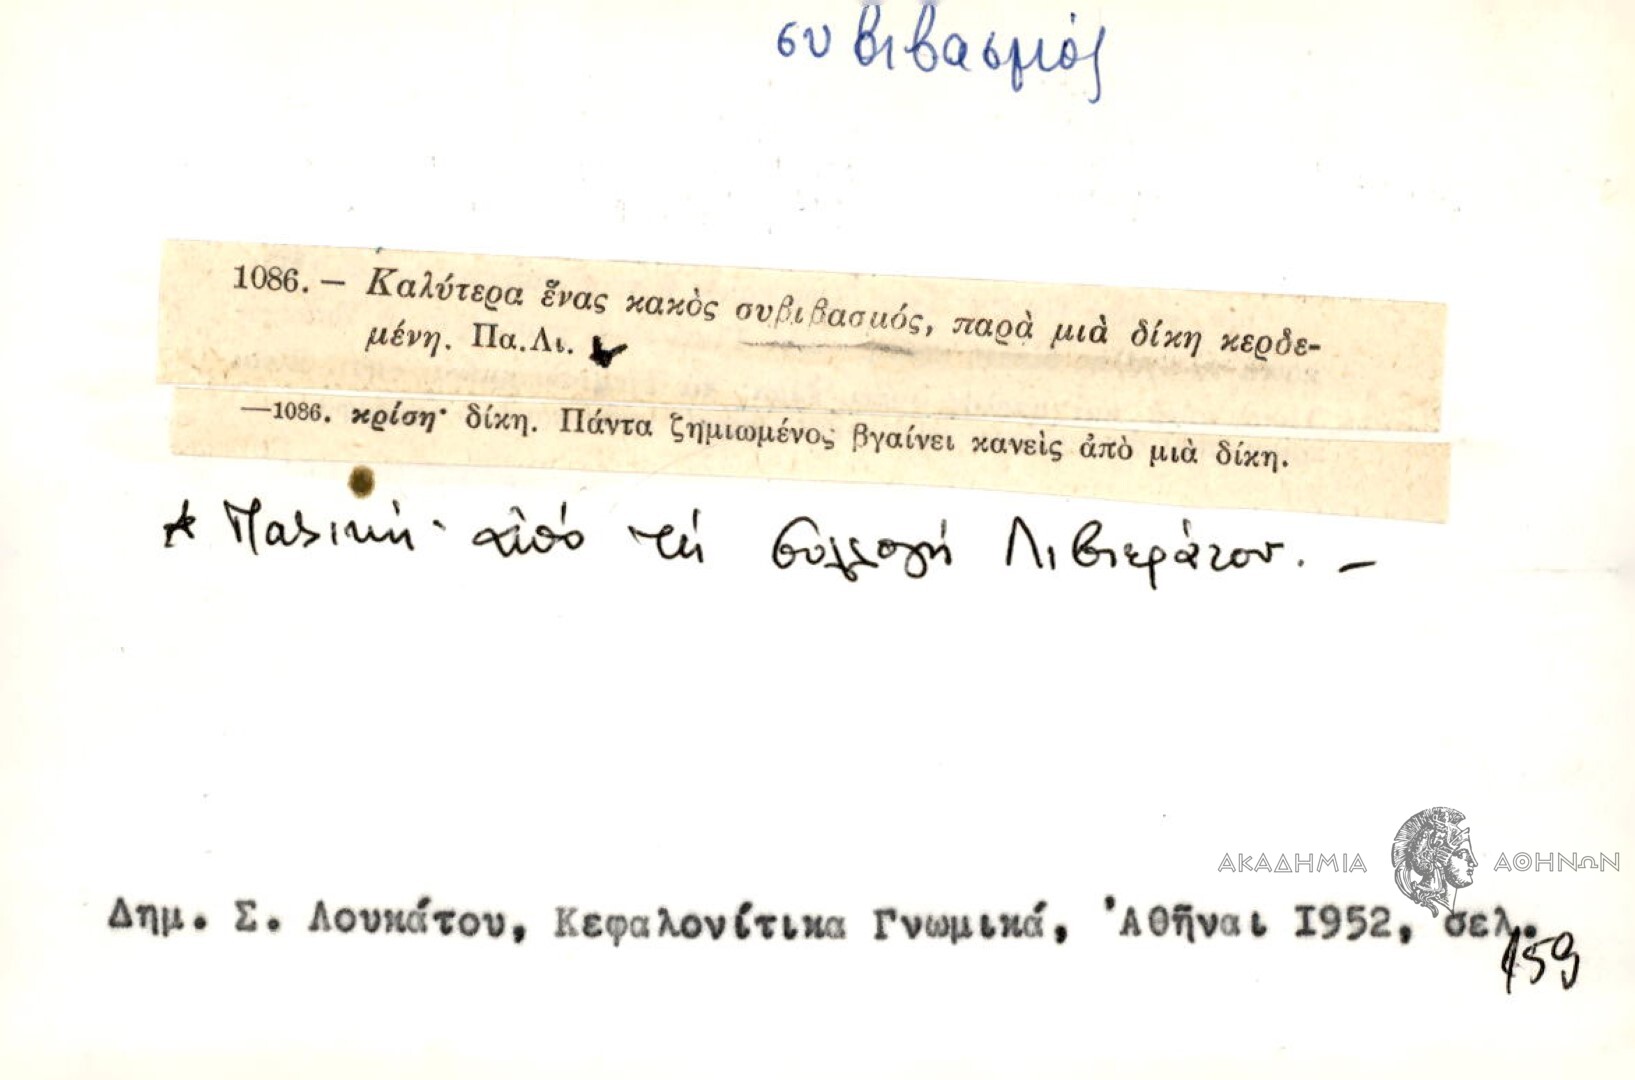 συβιβασμός
1086. — Καλύτερα ἕνας κακὸς συβιβασμός, παρὰ μιὰ δίκη κερδε-
μένη. Πα.Λι.
—1086. κρίση· δίκη. Πάντα ζημιωμένος βγαίνει κανεὶς ἀπὸ μιὰ δίκη.
* Παλικὴ· ἀπὸ τὴ συλλογὴ Λιβιεράτου. —
ΑΚΑΔΗΜΙΑ ΑΘΗΝΩΝ
Δημ. Σ. Λουκάτου, Κεφαλονίτικα Γνωμικά, Ἀθῆναι 1952, σελ.
159